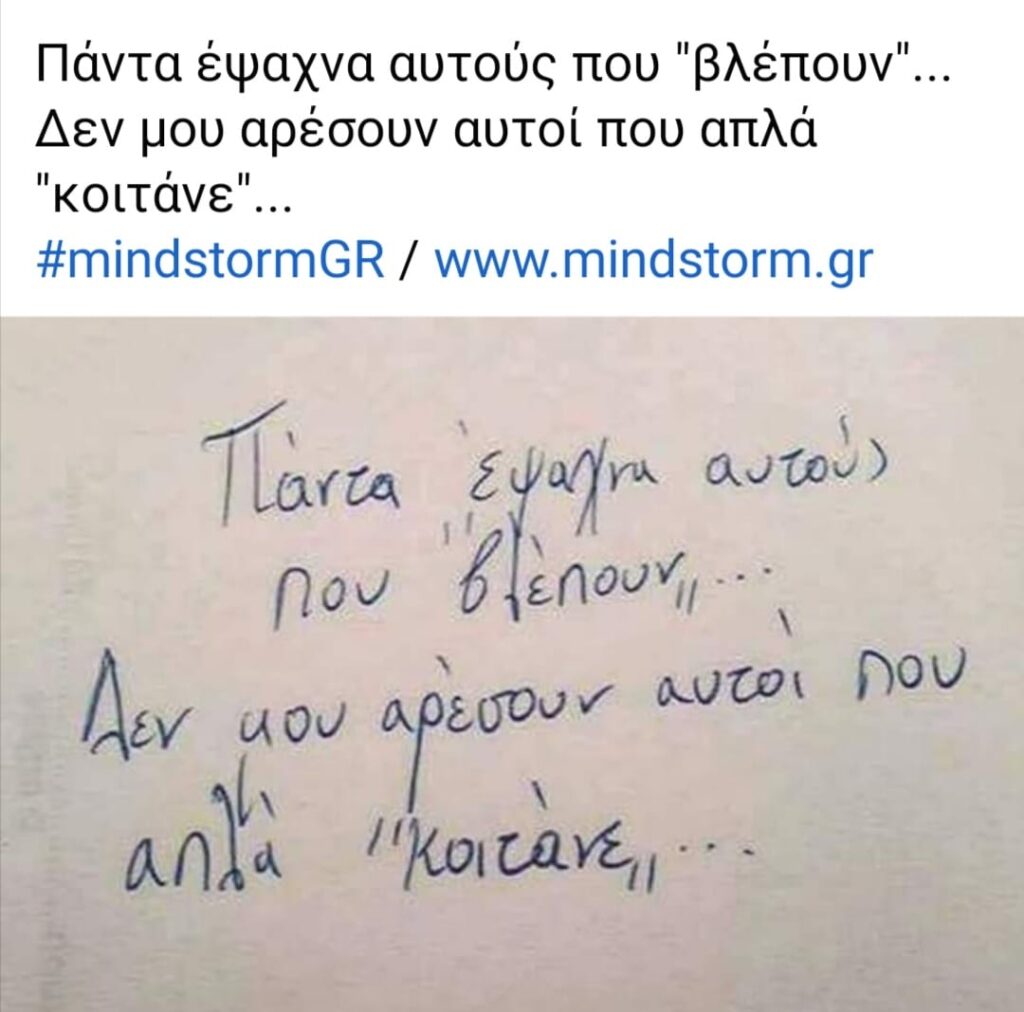 Πάντα έψαχνα αυτούς που "βλέπουν"...
Δεν μου αρέσουν αυτοί που απλά
"κοιτάνε"...
#mindstormGR / www.mindstorm.gr
Πάντα έψαχνα αυτούς
που "βλέπουν„...
Δεν μου αρέσουν αυτοί που
απλά "κοιτάνε„...